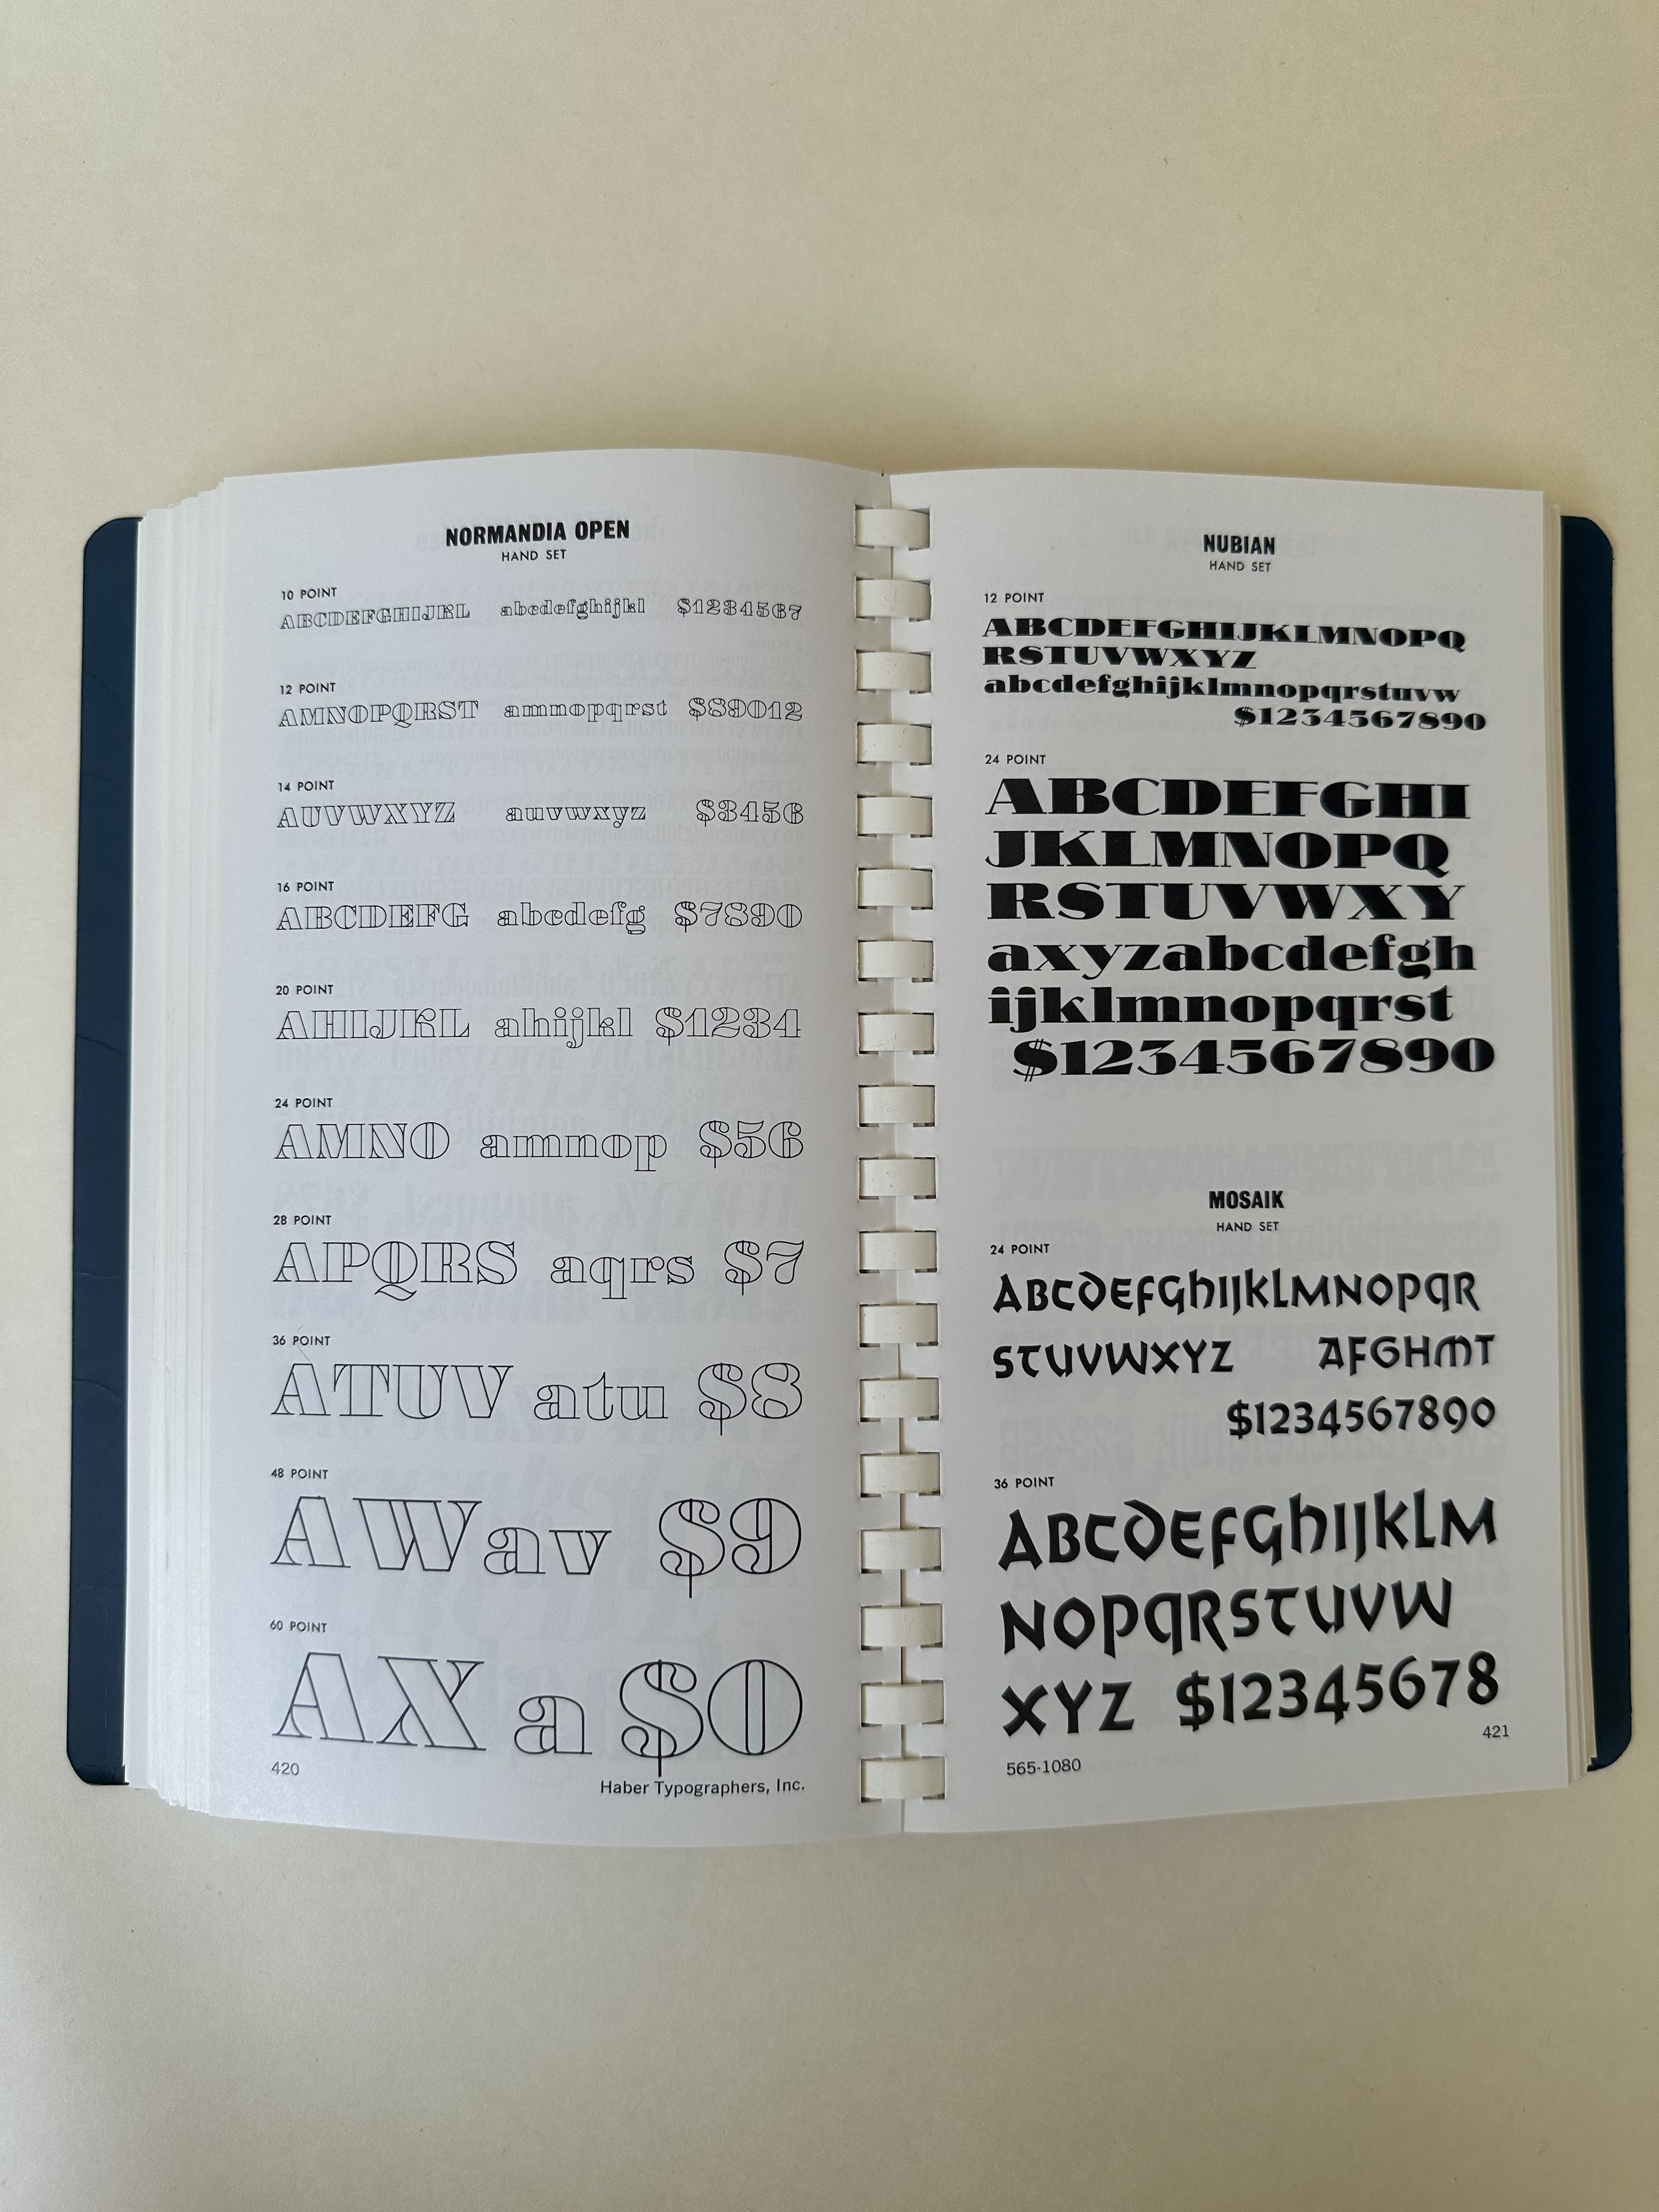 NORMANDIA OPEN
HAND SET
10 POINT
ABCDEFGHIJKL abcdefghijkl $1234567
12 POINT
AMNOPQRST amnopqrst $89012
14 POINT
AUVWXYZ auvwxyz $3456
16 POINT
ABCDEFG abcdefg $7890
20 POINT
AHIJKL ahijkl $1234
24 POINT
AMNO amnop $56
28 POINT
APQRS aqrs $7
36 POINT
ATUV atu $8
48 POINT
AWav $9
60 POINT
AX a $0
420
Haber Typographers, Inc.
NUBIAN
HAND SET
12 POINT
ABCDEFGHIJKLMNOPQ
RSTUVWXYZ
abcdefghijklmnopqrstuvw
$1234567890
24 POINT
ABCDEFGHI
JKLMNOPQ
RSTUVWXY
axyzabcdefgh
ijklmnopqrst
$1234567890
MOSAIK
HAND SET
24 POINT
ABCDEFGHIJKLMNOPQR
STUVWXYZ AFGHMT
$1234567890
36 POINT
ABCDEFGHIJKLM
NOPQRSTUVW
XYZ $12345678
421
565-1080